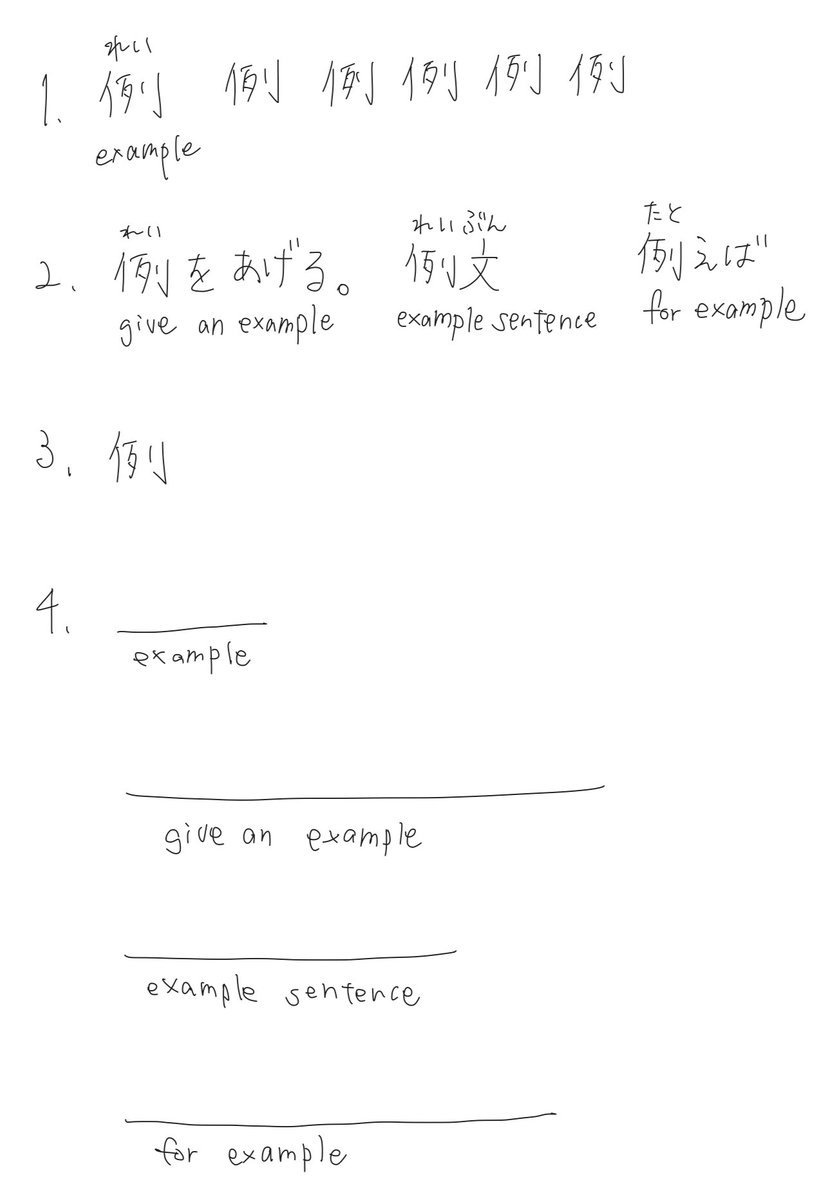 れい
1. 例 例 例 例 例 例
example
れい れいぶん たと
2. 例をあげる。 例文 例えば
give an example example sentence for example
3. 例
4.
example
give an example
example sentence
for example